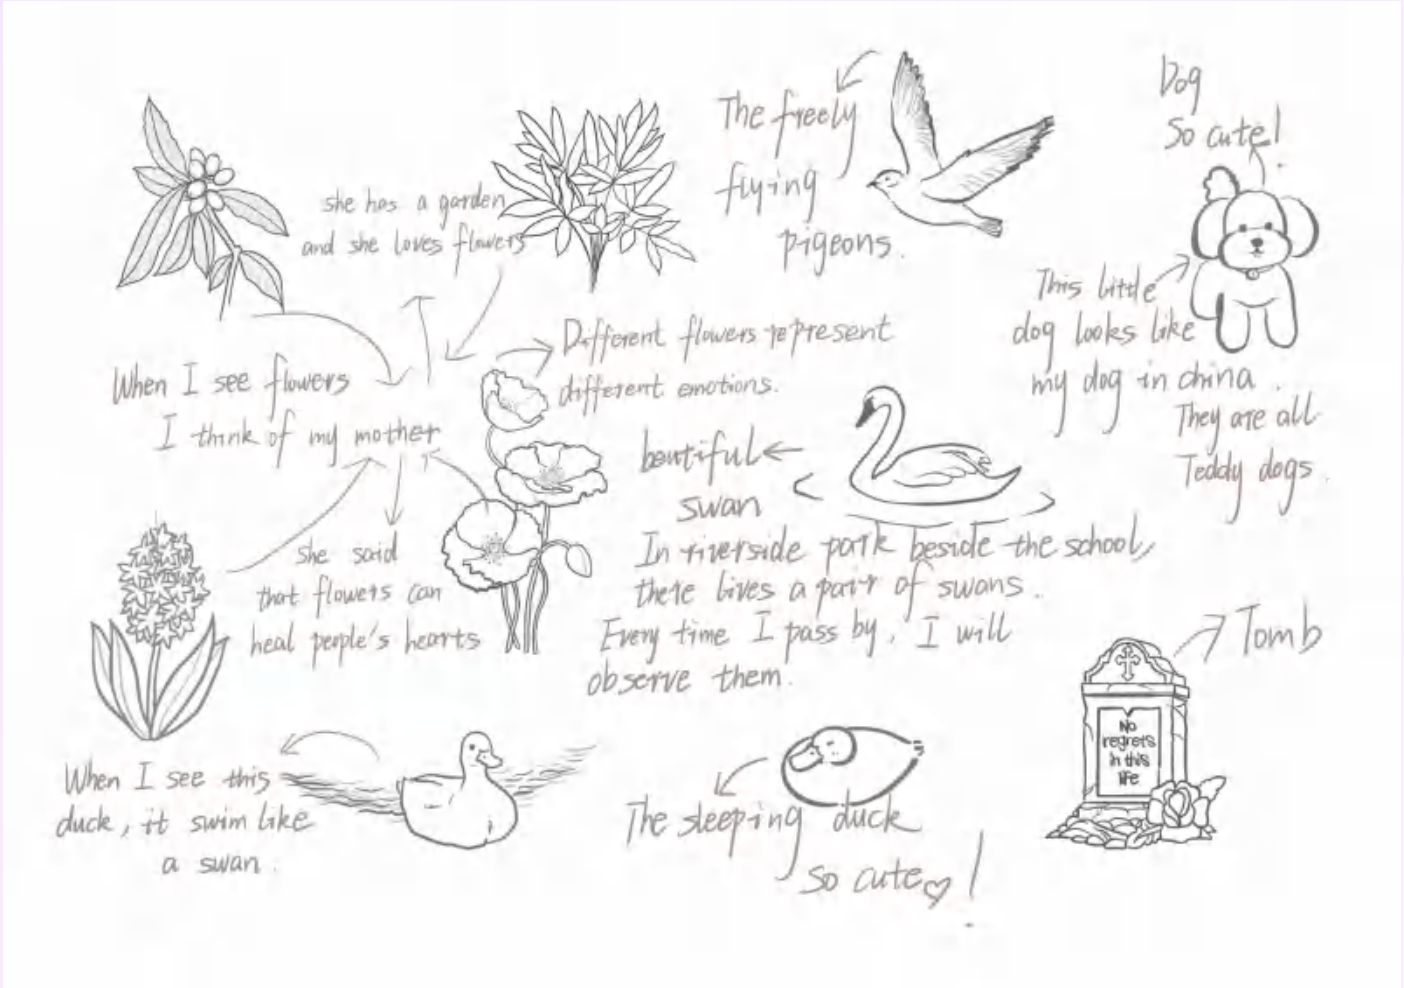 she has a garden
and she loves flowers
The freely
flying
pigeons.
Dog
So cute!
This little
dog looks like
my dog in china.
They are all
Teddy dogs.
Different flowers represent
different emotions.
When I see flowers
I think of my mother
beutiful
swan
In riverside park beside the school,
there lives a pair of swans.
Every time I pass by, I will
observe them.
she said
that flowers can
heal people's hearts
Tomb
No
regrets
in this
life
When I see this
duck, it swim like
a swan.
The sleeping duck
So cute♡!